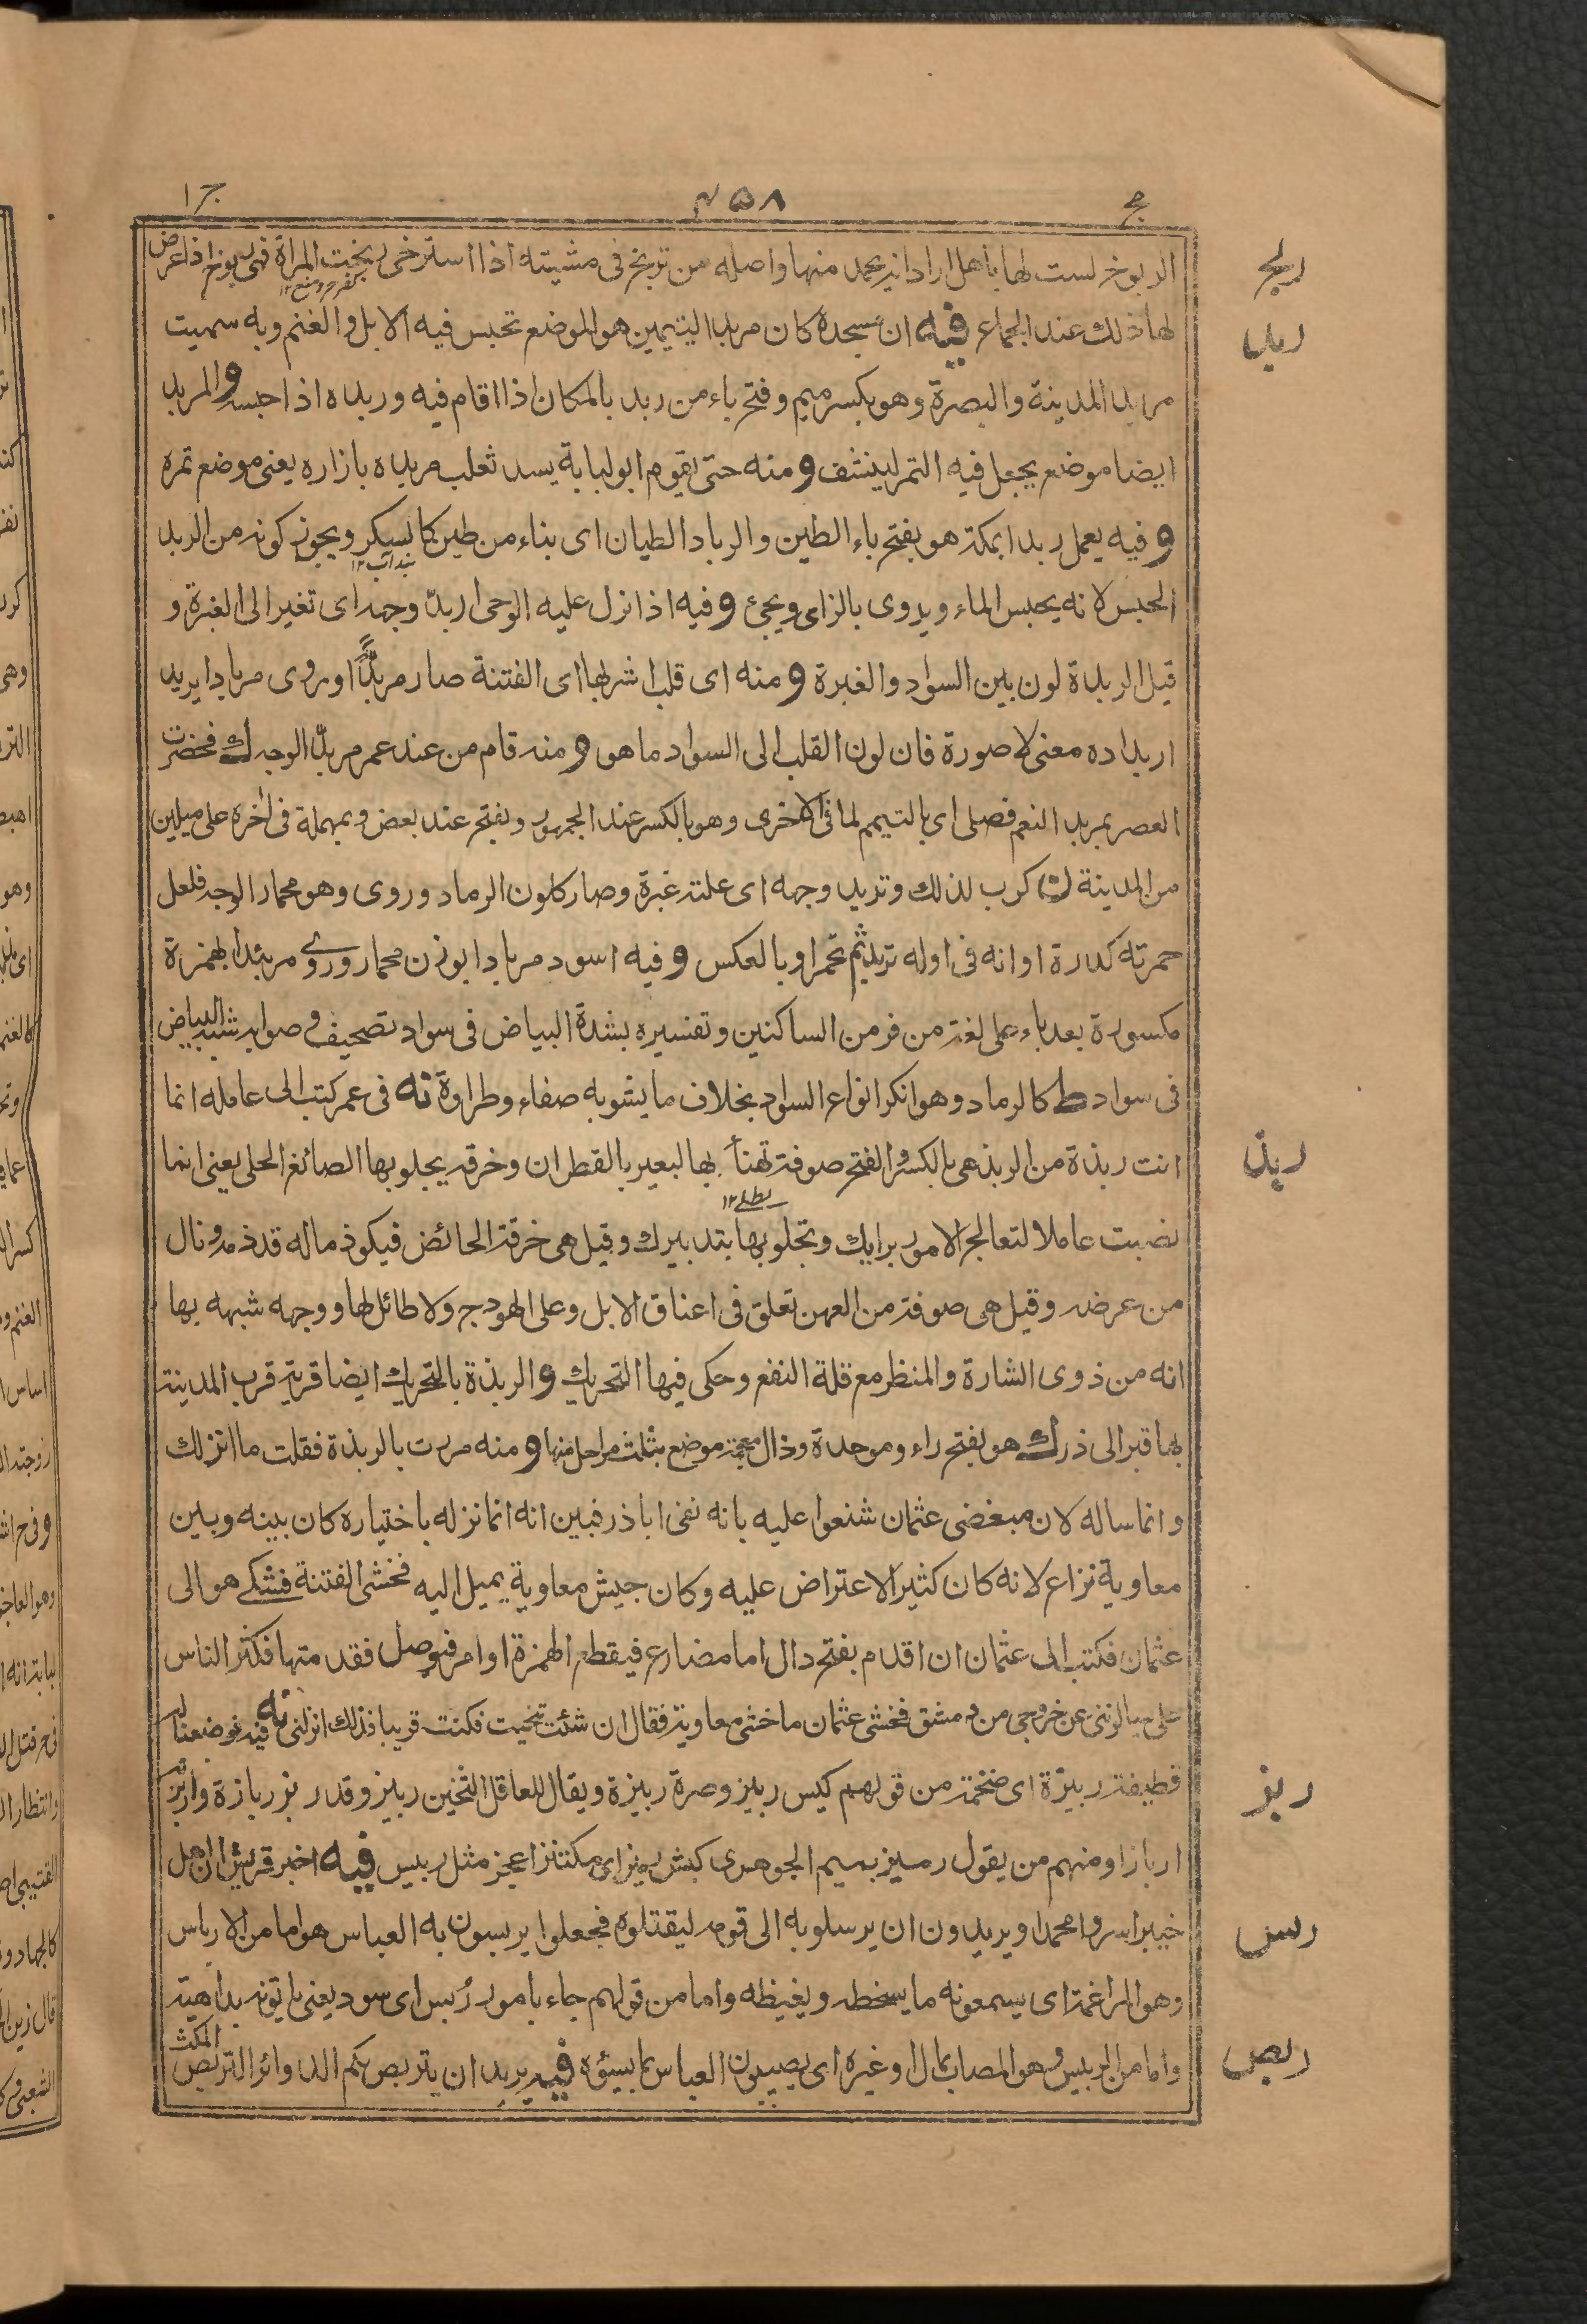 ج ٤٥٨ ج ١
ربخ
الربوخ لست لها باهل اراد انه يحمد منها واصله من تربخ فى مشيته اذا استرخى ربخت المراة فهى ربوخ اذا عرض
لها ذلك عند الجماع فيه ان مسجده كان مربد اليتيمين هو الموضع تحبس فيه الابل والغنم وبه سميت
ربد
مربد المدينة والبصرة وهو بكسر ميم وفتح باء من ربد بالمكان اذا اقام فيه وربده اذا حبسه و المربد
ايضا موضع يجعل فيه التمر لينشف و منه حتى يقوم ابو لبابة يسد ثعلب مربده بازاره يعنى موضع تمره
و فيه يعمل ربدا بمكة هو بفتح باء الطين والرباد الطيان اى بناء من طين كالسكر ويجوز كونه من الربد
الحبس لانه يحبس الماء ويروى بالزاى ويجئ و فيه اذا نزل عليه الوحى اربدّ وجهه اى تغير الى الغبرة و
قيل الربدة لون بين السواد والغبرة و منه اى قلب اشربها اى الفتنة صار مربدًّا وروى مربادا يريد
اربداده معنى لا صورة فان لون القلب الى السواد ما هو و منه قام من عند عمر مربدّ الوجه ك فحضرت
العصر بمربد النعم فصلى اى بالتيمم لما فى الاخرى وهو بالكسر عند الجمهور وبفتح عند بعض وبمهملة فى اخره على ميلين
من المدينة ن كرب لذلك وتربد وجهه اى علته غبرة وصار كلون الرماد وروى وهو محمار الوجه فلعل
حمرته كدرة او انه فى اوله تربد ثم تحمر او بالعكس و فيه اسود مربادا بوزن محمار وروى مربئدا بهمزة
مكسورة بعد باء على لغة من فر من الساكنين وتفسيره بشدة البياض فى سواد تصحيف و صوابه شبه البياض
فى سواد ط كالرماد وهو انكر انواع السواد بخلاف ما يشوبه صفاء وطراوة نه فى عمر كتب الى عامله انما
ربذ
انت ربذة من الربذ هى بالكسر والفتح صوفة تهنأ بها البعير بالقطران وخرقة يجلو بها الصائغ الحلى يعنى انما
نصبت عاملا لتعالج الامور برايك وتجلو بها بتدبيرك وقيل هى خرقة الحائض فيكون ذماله قد ذمه ونال
من عرضه وقيل هى صوفة من العهن تعلق فى اعناق الابل وعلى الهودج ولا طائل لها ووجهه شبهه بها
انه من ذوى الشارة والمنظر مع قلة النفع وحكى فيها التحريك و الربذة بالتحريك ايضا قرية قرب المدينة
بها قبر ابى ذر ك هو بفتح راء وموحدة وذال معجمة موضع بثلث مراحل منها و منه مررت بالربذة فقلت ما انزلك
وانما ساله لان مبغضى عثمان شنعوا عليه بانه نفى اباذر فبين انه انما نزله باختياره كان بينه وبين
معاوية نزاع لانه كان كثير الاعتراض عليه وكان جيش معاوية يميل اليه فخشى الفتنة فشكے هو الى
عثمان فكتب الى عثمان ان اقدم بفتح دال اما مضارع فيقطع الهمزة او امر فتوصل فقدمتها فكثر الناس
على يسالوننى عن خروجى من دمشق فخشى عثمان ما خشى معاوية فقال ان شئت تنحيت فكنت قريبا فذلك انزلنى نه فيه فوضعنا له
ربز
قطيفة ربيزة اى ضخمة من قولهم كيس ربيز وصرة ربيزة ويقال للعاقل الثخين ربيز وقد ربز ربازة واربزته
اربازا ومنهم من يقول رميز بميم الجوهرى كبش ربيز اى مكتنز اعجز مثل ربيس فيه اخبر قريشا ان اهل
ربس
خيبر اسروا محمدا ويريدون ان يرسلوا به الى قومه ليقتلوه فجعلوا يربسون به العباس هو اما من الارباس
وهو المراغمة اى يسمعونه ما يسخطه ويغيظه واما من قولهم جاء بامور رُبس اى سود يعنى ياتونه بداهية
ربص
واما من الربيس وهو المصاب بمال او غيره اى يصيبون العباس بما يسوءه فيه يريد ان يتربص بكم الدوائر التربص المكث